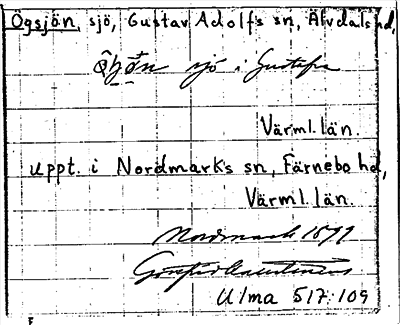 Ögsjön, sjö, Gustav Adolfs sn, Älvdals hd,
sjö i Gustafs
Värml. län.
uppt. i Nordmarks sn, Färnebo hd,
Värml. län.
Nordmark
Ulma 517:109